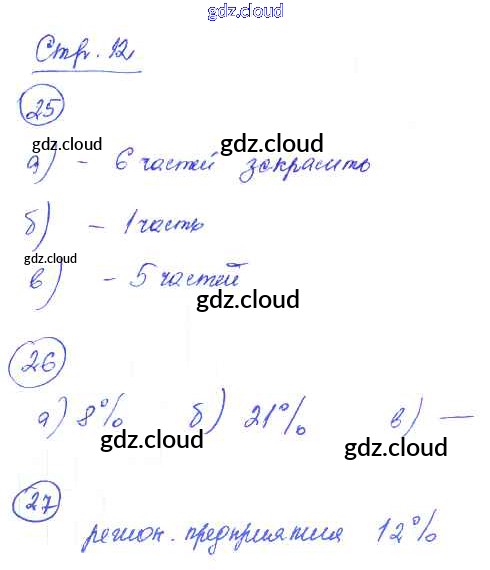 gdz.cloud
Стр. 12
25
gdz.cloud gdz.cloud
а) - 6 частей закрасить
б) - 1 часть
gdz.cloud
в) - 5 частей
gdz.cloud
26
а) 8% б) 21% в) —
gdz.cloud gdz.cloud
27
gdz.cloud
регион. предприятия 12%